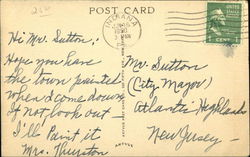 POST CARD
INDIANA
Hi Mr. Sutton:
Hope you have
the town painted
when I come down,
If not look out
I'll Paint it
Mrs. Thurston
Mr. Sutton
(City Mayor)
Atlantic Highlands
New Jersey